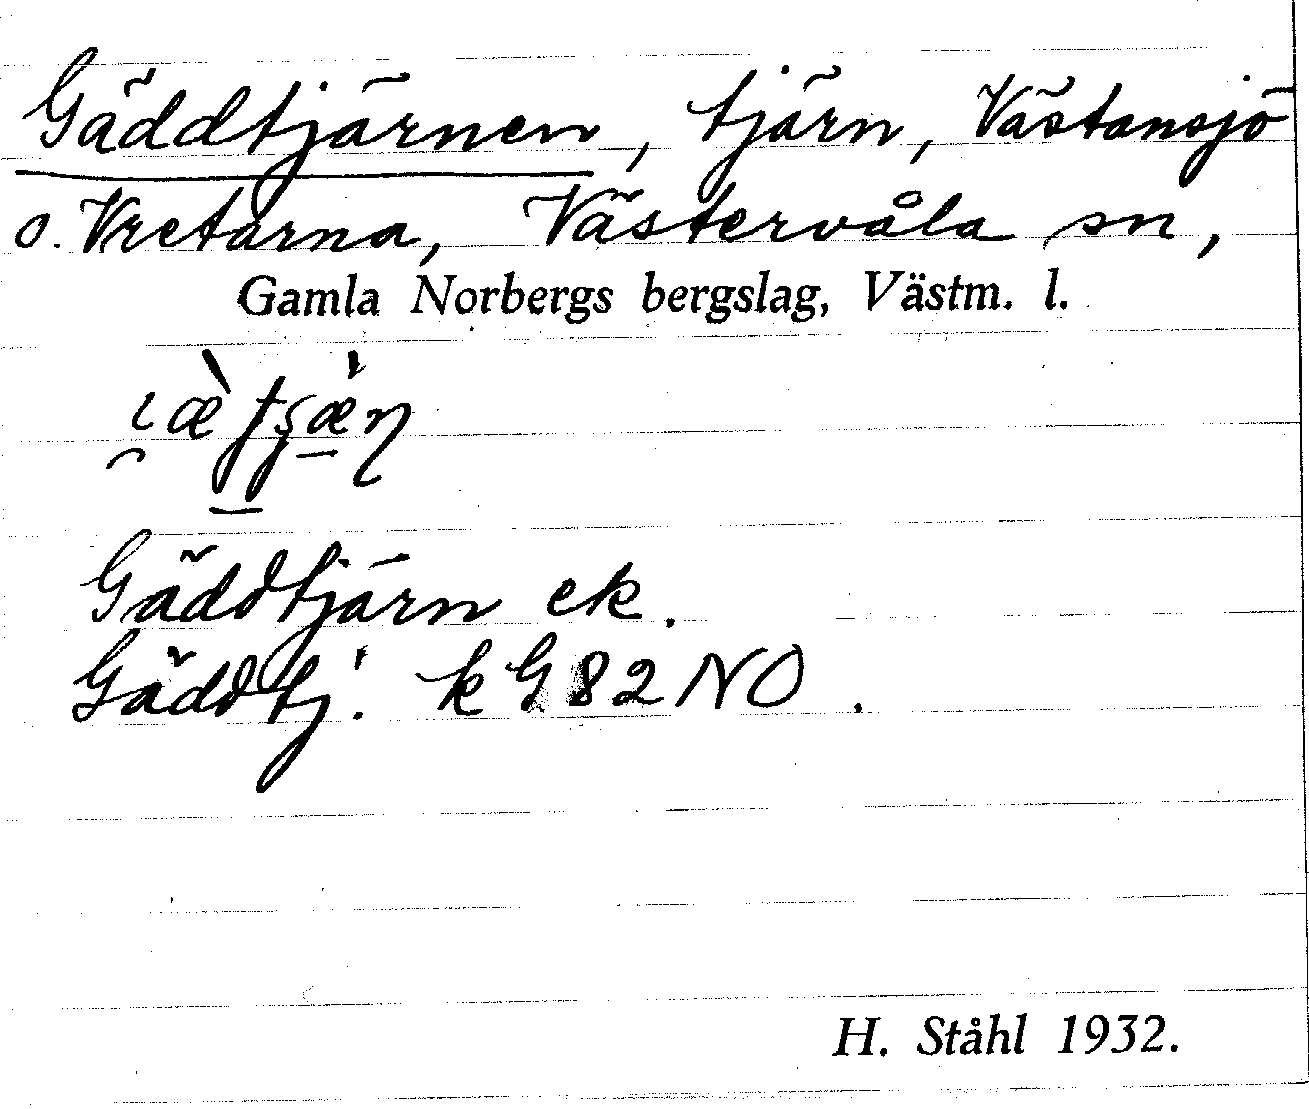 Gäddtjärnen, tjärn, Västansjö
o. Vretarna, Västervåla sn,
Gamla Norbergs bergslag, Västm. l.
Gäddtjärn ek.
Gäddtj. k G 82 NO.
H. Ståhl 1932.